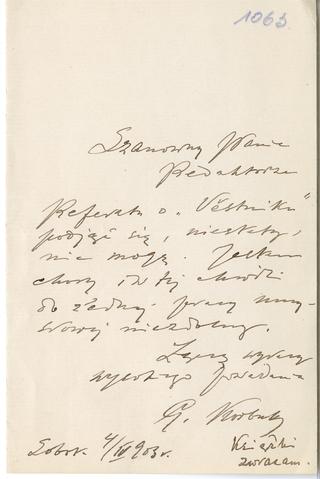 1063
Szanowny Panie
Redaktorze
Referatu o „Věstniku"
podjąć się, niestety,
nie mogę. Jestem
chory i w tej chwili
do żadnej pracy umy-
słowej niezdolny.
Łączę wyrazy
wysokiego poważania
G. Korbut
Książki
zwracam.
Sobot. 4/IV 903 r.